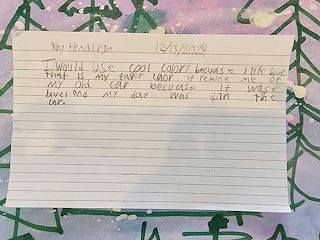 Ray Henderson 12/13/2024
I Would Use cool colors becuase I like blue
that is my faver caor it remine me of
my old car becuase it wase
blue and my dad was in the
car.